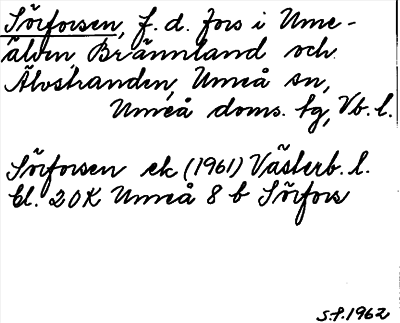 Sörforsen, f. d. fors i Ume-
älven, Brännland och
Älvstranden, Umeå sn,
Umeå doms. tg, Vb. l.
Sörforsen ek (1961) Västerb. l.
bl. 20K Umeå 8 b Sörfors
S.P. 1962